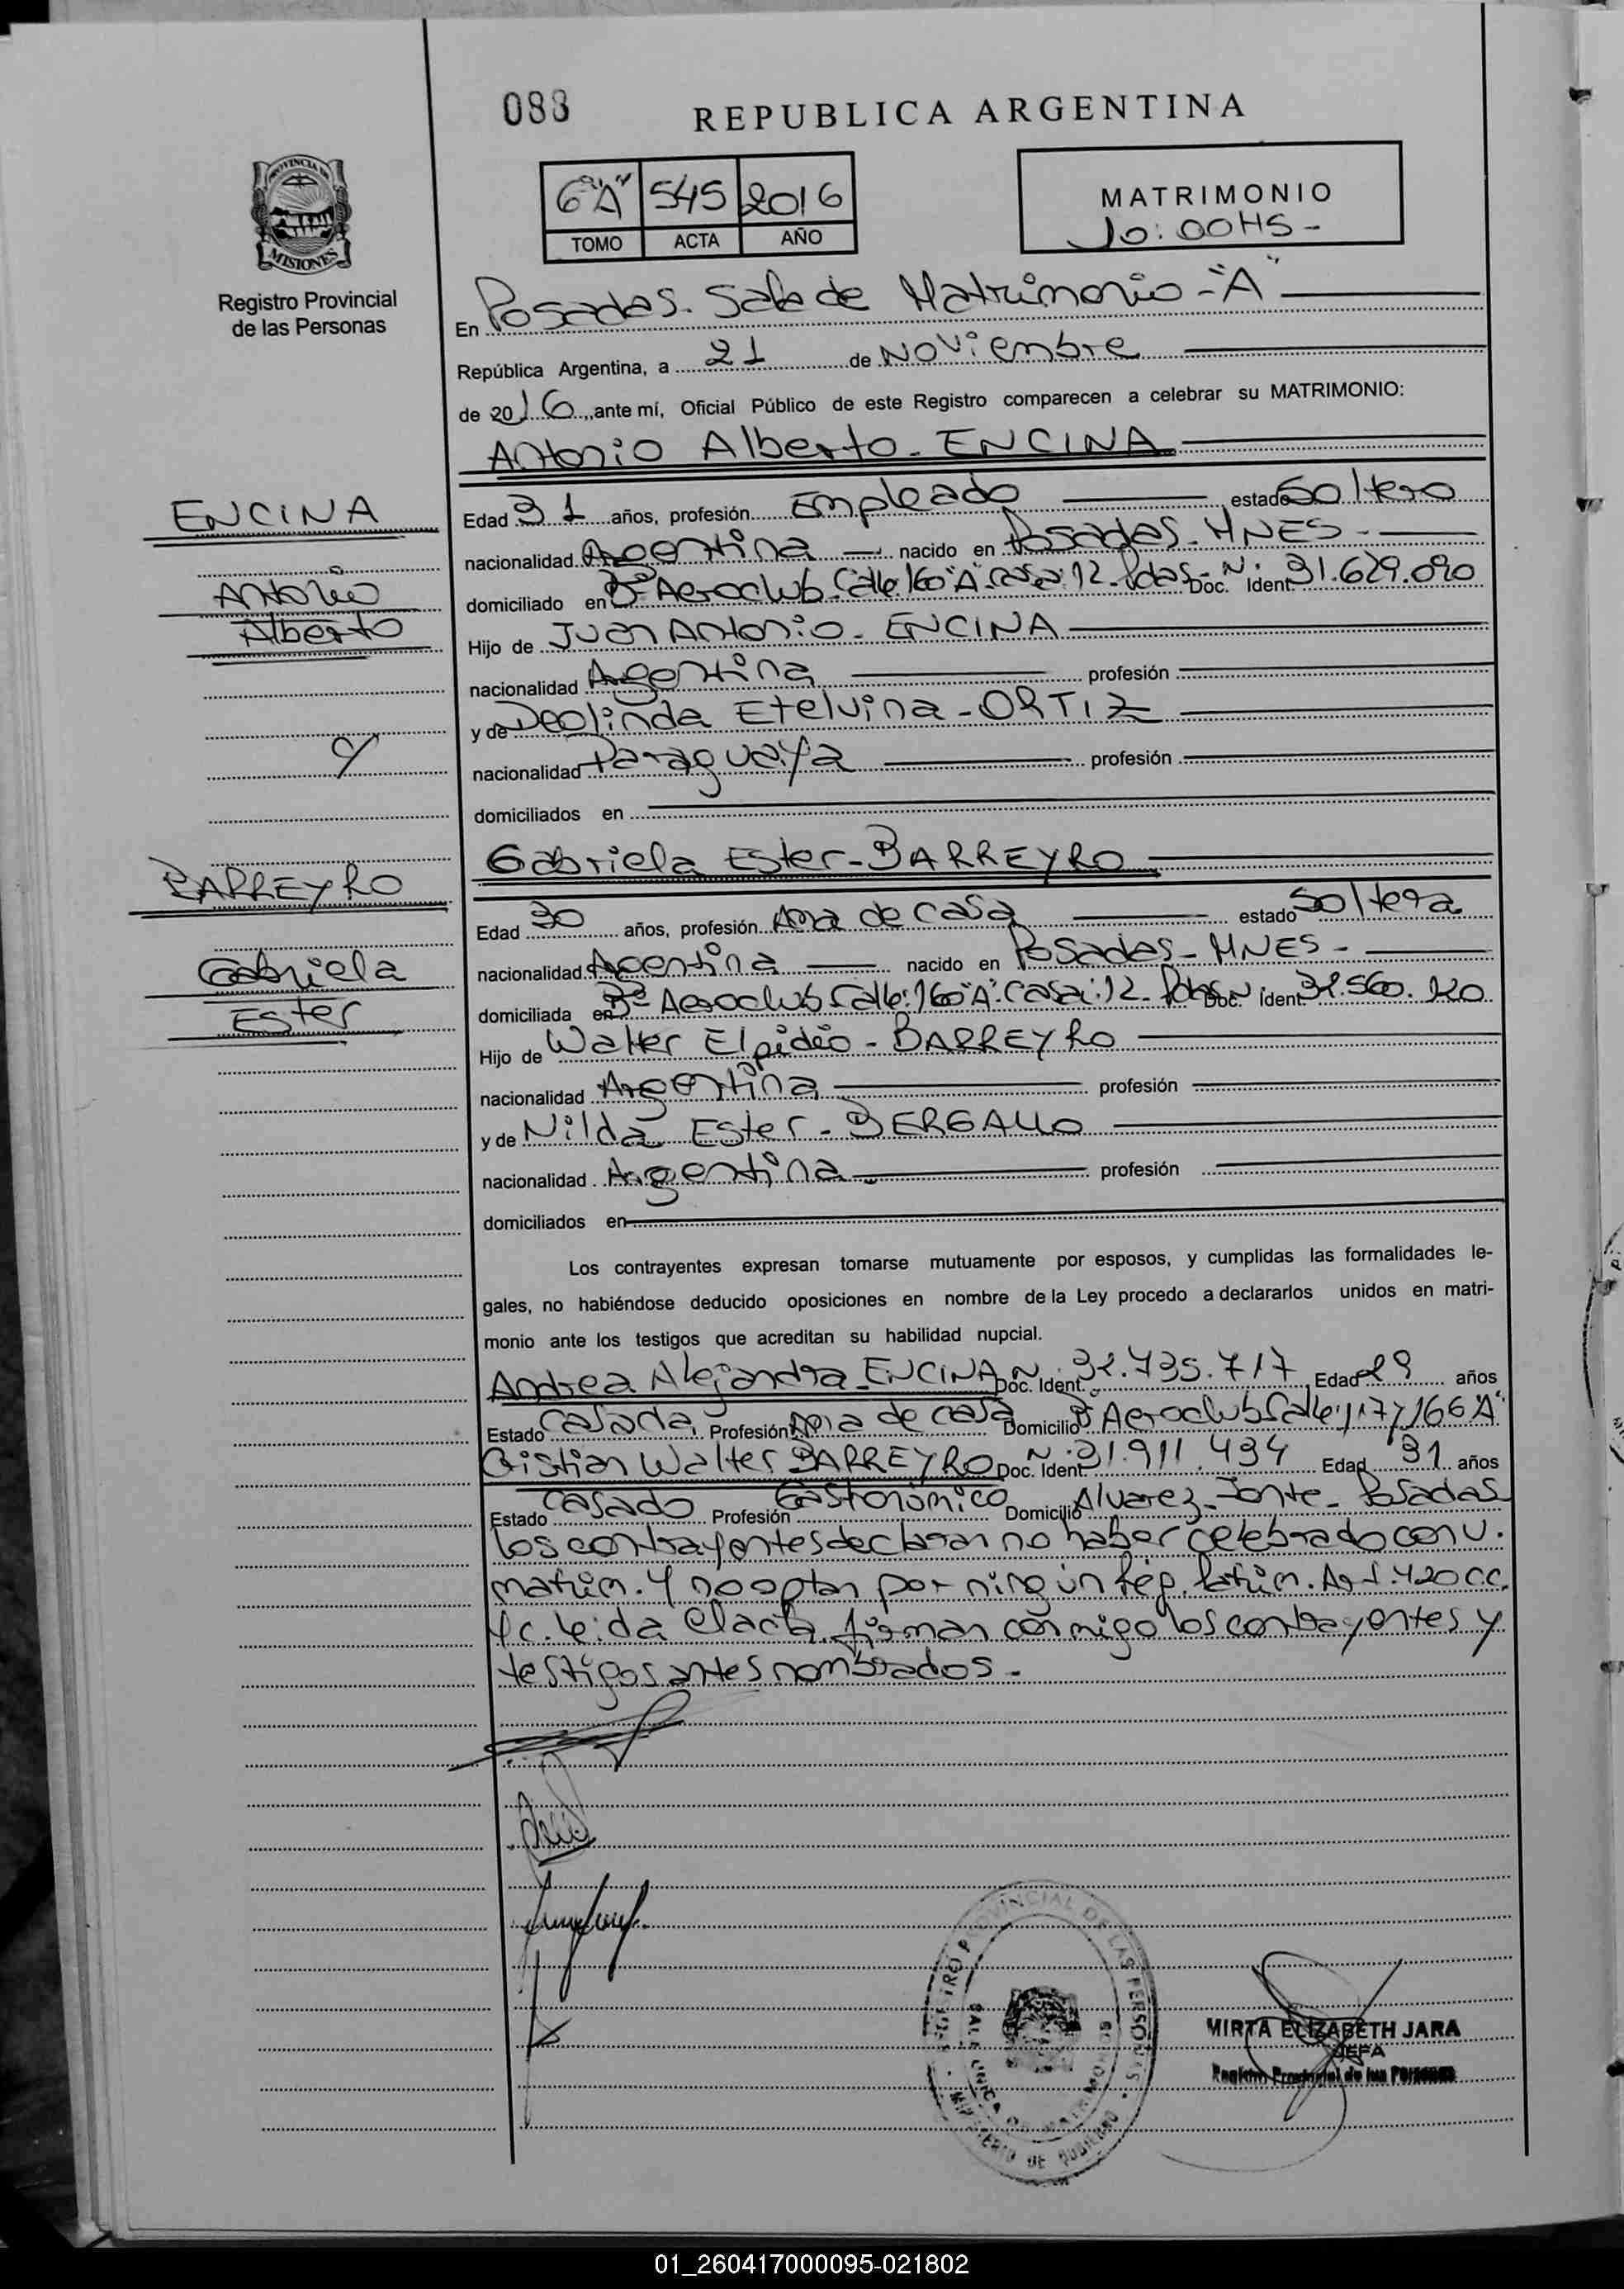 088
REPUBLICA ARGENTINA
PROVINCIA DE
MISIONES
Registro Provincial
de las Personas
6º"A" 545 2016
TOMO ACTA AÑO
MATRIMONIO
10:00HS-
En Posadas. Sala de Matrimonio-"A"
República Argentina, a 21 de Noviembre
de 2016, ante mí, Oficial Público de este Registro comparecen a celebrar su MATRIMONIO:
Antonio Alberto-ENCINA
ENCINA
Antonio
Alberto
c/
BARREYRO
Gabriela
Ester
Edad 31 años, profesión Empleado estado Soltero
nacionalidad Argentina nacido en Posadas-MNES-
domiciliado en Bº Aeroclub Calle 160"A" casa:12-Pdas- Doc. Ident. Nº 31.629.090
Hijo de Juan Antonio-ENCINA
nacionalidad Argentina profesión
y de Deolinda Etelvina-ORTIZ
nacionalidad Paraguaya profesión
domiciliados en
Gabriela Ester-BARREYRO
Edad 30 años, profesión Ama de casa estado Soltera
nacionalidad Argentina nacido en Posadas-MNES-
domiciliada en Bº Aeroclub Calle:160"A" casa:12- Doc. Ident. 32.560.120
Hijo de Walter Elpidio-BARREYRO
nacionalidad Argentina profesión
y de Nilda Ester-BERGALLO
nacionalidad Argentina profesión
domiciliados en
Los contrayentes expresan tomarse mutuamente por esposos, y cumplidas las formalidades le-
gales, no habiéndose deducido oposiciones en nombre de la Ley procedo a declararlos unidos en matri-
monio ante los testigos que acreditan su habilidad nupcial.
Andrea Alejandra-ENCINA Doc. Ident. Nº 32.735.717 Edad 29 años
Estado Casada, Profesión Ama de casa Domicilio Bº Aeroclub Calle:117 y 166"A"
Cristian Walter BARREYRO Doc. Ident. Nº 31.911.434 Edad 31 años
Estado Casado Profesión Gastronómico Domicilio Alvarez-Jonte-Posadas
Los contrayentes declaran no haber celebrado conv.
matrim. Y no optan por ningún Rég. Patrim. Art. 420 C.C.
Yc. Leida el acta, firman conmigo los contrayentes y
testigos antes nombrados-
REGISTRO PROVINCIAL DE LAS PERSONAS
SALA UNICA DE MATRIMONIOS
MINISTERIO DE GOBIERNO
MIRTA ELIZABETH JARA
JEFA
Registro Provincial de las Personas
01_260417000095-021802